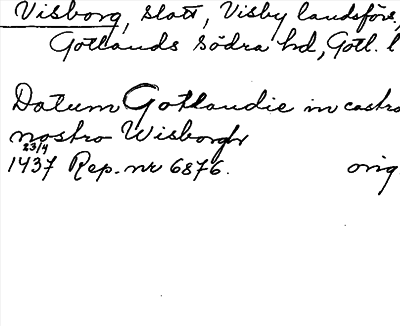 Visborg, slott, Visby landsförs.,
Gotlands Södra hd, Gotl. l
Datum Gotlandie in castro
nostro Wisborgh
23/4
1437 Rep. nr 6876. orig